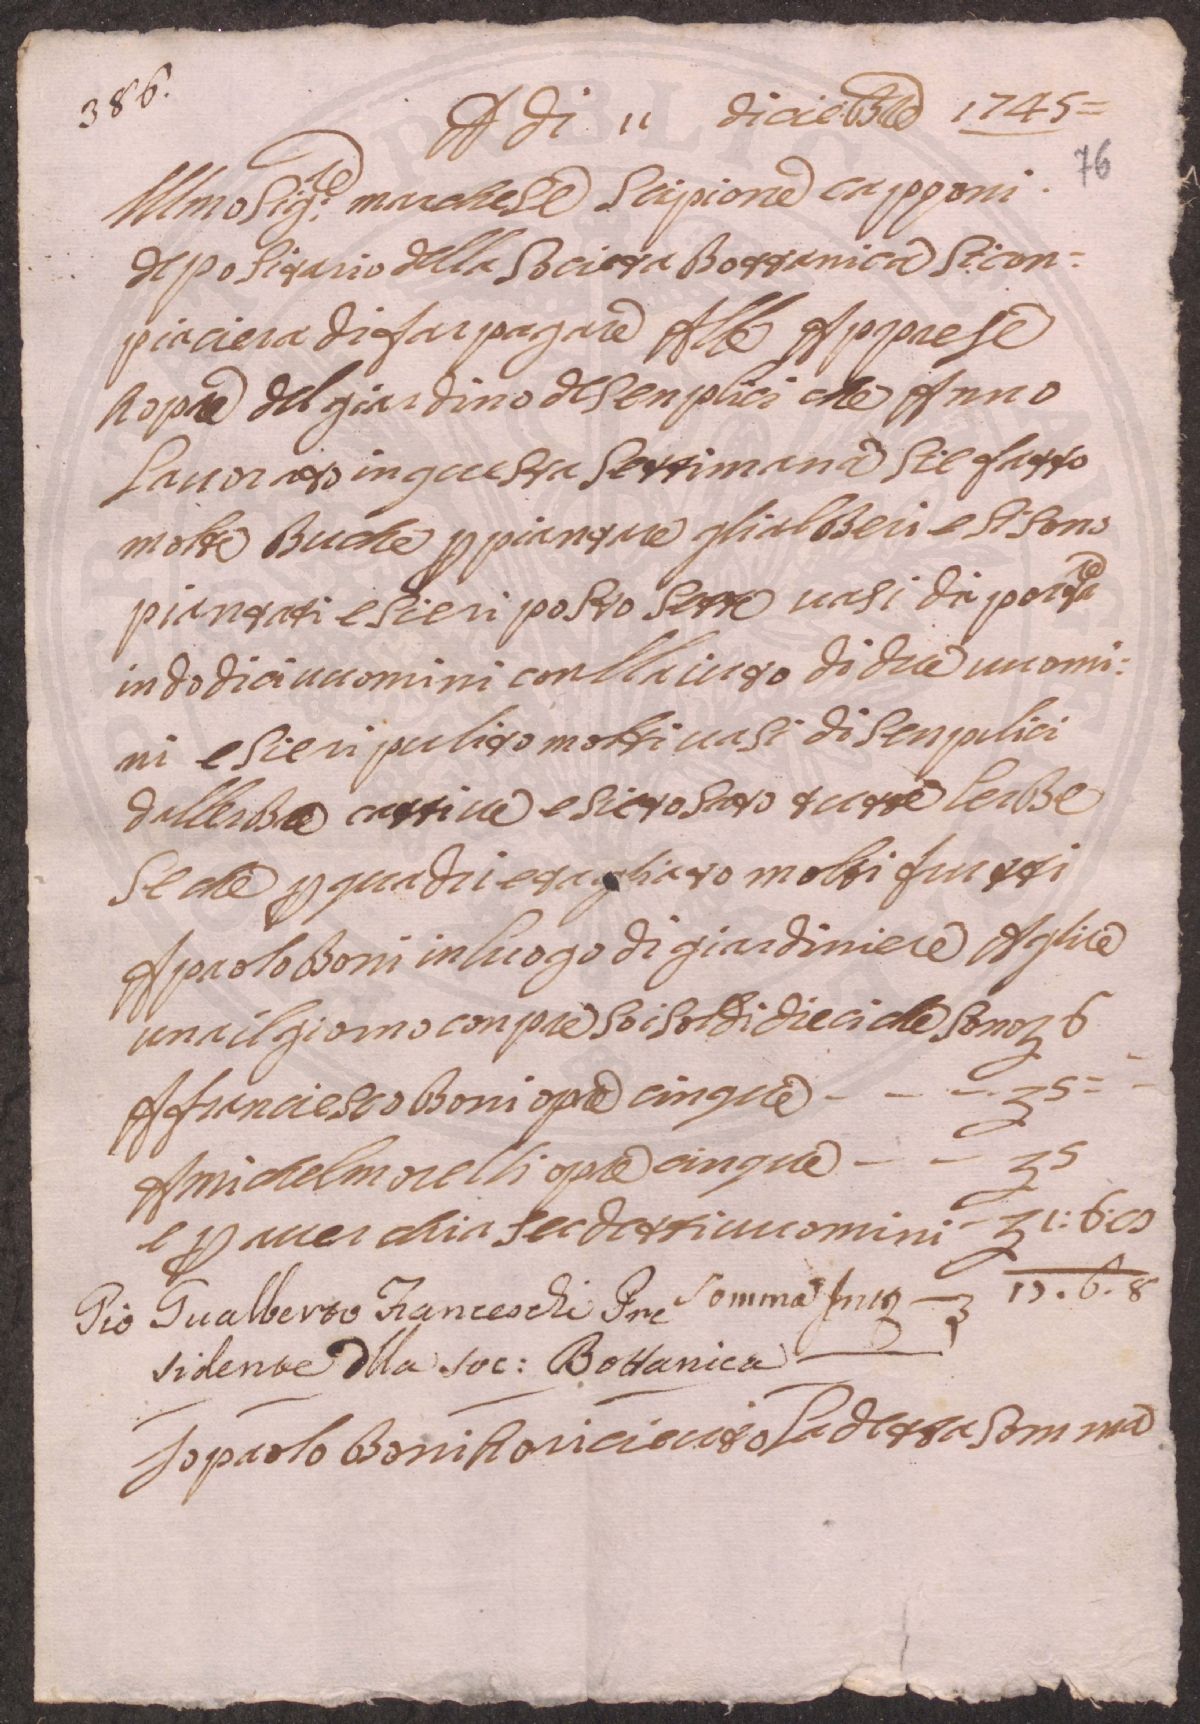 386.
A di 11 diciebre 1745=
76
Illmo Sig:re marchese Scipione capponi
depositario della Societta Bottanica Si con=
piaciera di far pagare Alle Apprese
hopre del giardino de Senplici che Anno
Lauorato in questa Settimana Si e fatto
molte Buche p piantare gli alBeri e Si sono
piantati e Si eri posto Sette uasi di porta
in dodici uuomini con llaiuto di due uuomi=
ni e Si eri pulito molti uasi di Senpulici
dallerBe cattiue e Si e tosato tutte lerBe
Seche p quadri e tagliato molti frutti
A paolo Boni in luogo di giardiniere A glire
una il giorno conpreso i soldi dieci che sono £ 6
A franciesco Boni opre cinque - - - £ 5=
A michel morelli opre cinque - - £ 5
e p auer chiasu detti uuomini - £ 1: 6: 8
Somma £ 17. 6. 8
Gio Gualberto Franceschi Pre
sidente dlla soc: Bottanica
Io paolo Boni ho riceuuto La detta Somma